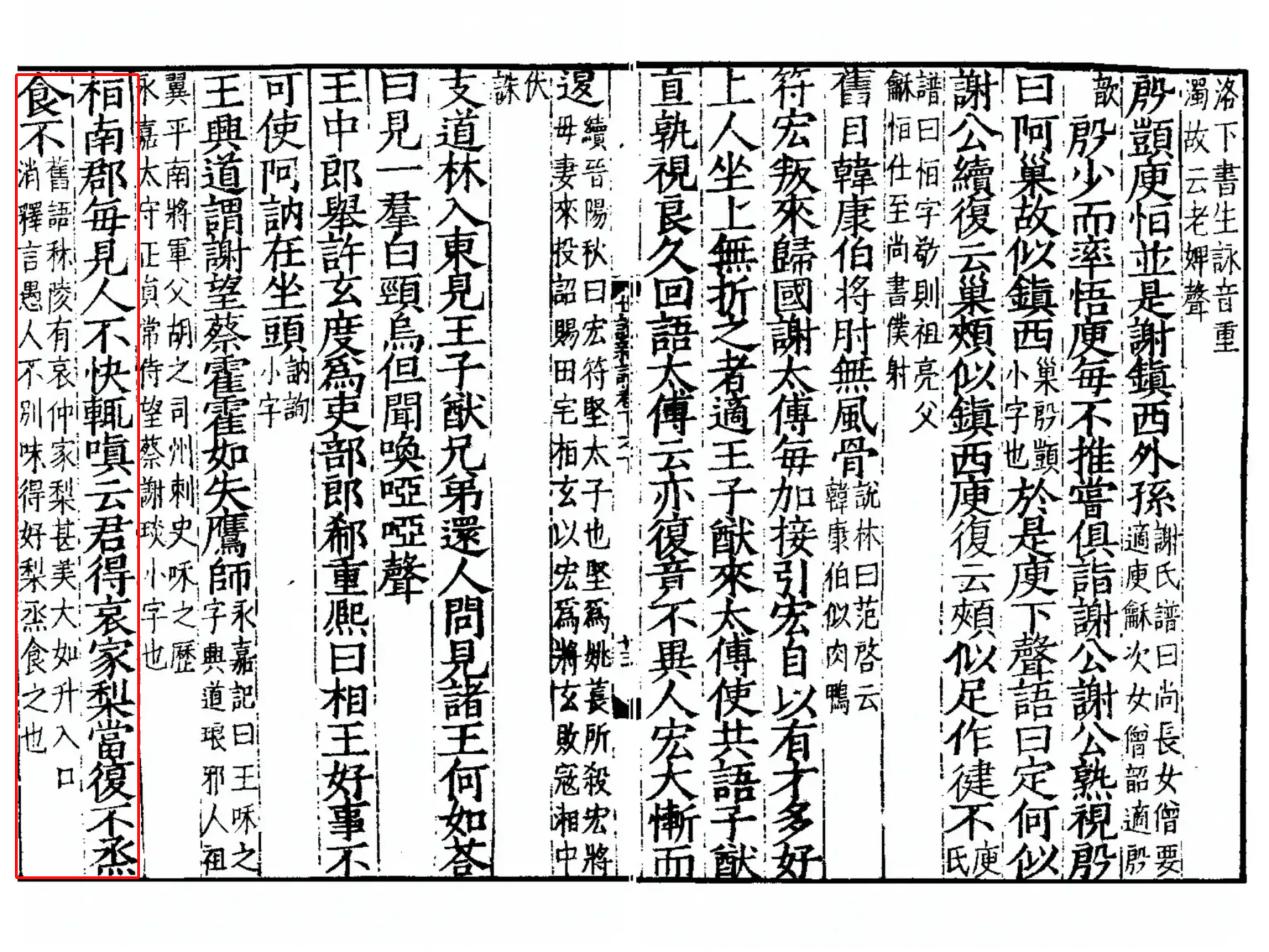 洛下書生詠音重
濁故云老婢聲
殷顗庾恒並是謝鎮西外孫謝氏譜曰尚長女僧要適庾龢次女僧韶適殷
歆殷少而率悟庾每不推嘗俱詣謝公謝公熟視殷
曰阿巢故似鎮西巢殷顗小字也於是庾下聲語曰定何似
謝公續復云巢頰似鎮西庾復云頰似足作健不庾氏
譜曰恒字敬則祖亮父
龢恒仕至尚書僕射
舊目韓康伯將肘無風骨說林曰范啓云韓康伯似肉鴨
符宏叛來歸國謝太傅每加接引宏自以有才多好
上人坐上無折之者適王子猷來太傅使共語子猷
直孰視良久回語太傅云亦復竟不異人宏大慚而
十三
退續晉陽秋曰宏符堅太子也堅爲姚萇所殺宏將母妻來投詔賜田宅桓玄以宏爲將玄敗寇湘中
伏誅
支道林入東見王子猷兄弟還人問見諸王何如荅
曰見一羣白頸烏但聞喚啞啞聲
王中郎舉許玄度爲吏部郎郗重熈曰相王好事不
可使阿訥在坐頭訥詢小字
王興道謂謝望蔡霍霍如失鷹師永嘉記曰王咊之字興道琅邪人祖
翼平南將軍父胡之司州刺史咊之歷
永嘉太守正貟常侍望蔡謝琰小字也
桓南郡每見人不快輒嗔云君得哀家梨當復不烝
食不舊語秣陵有哀仲家梨甚美大如升入口消釋言愚人不別味得好梨烝食之也